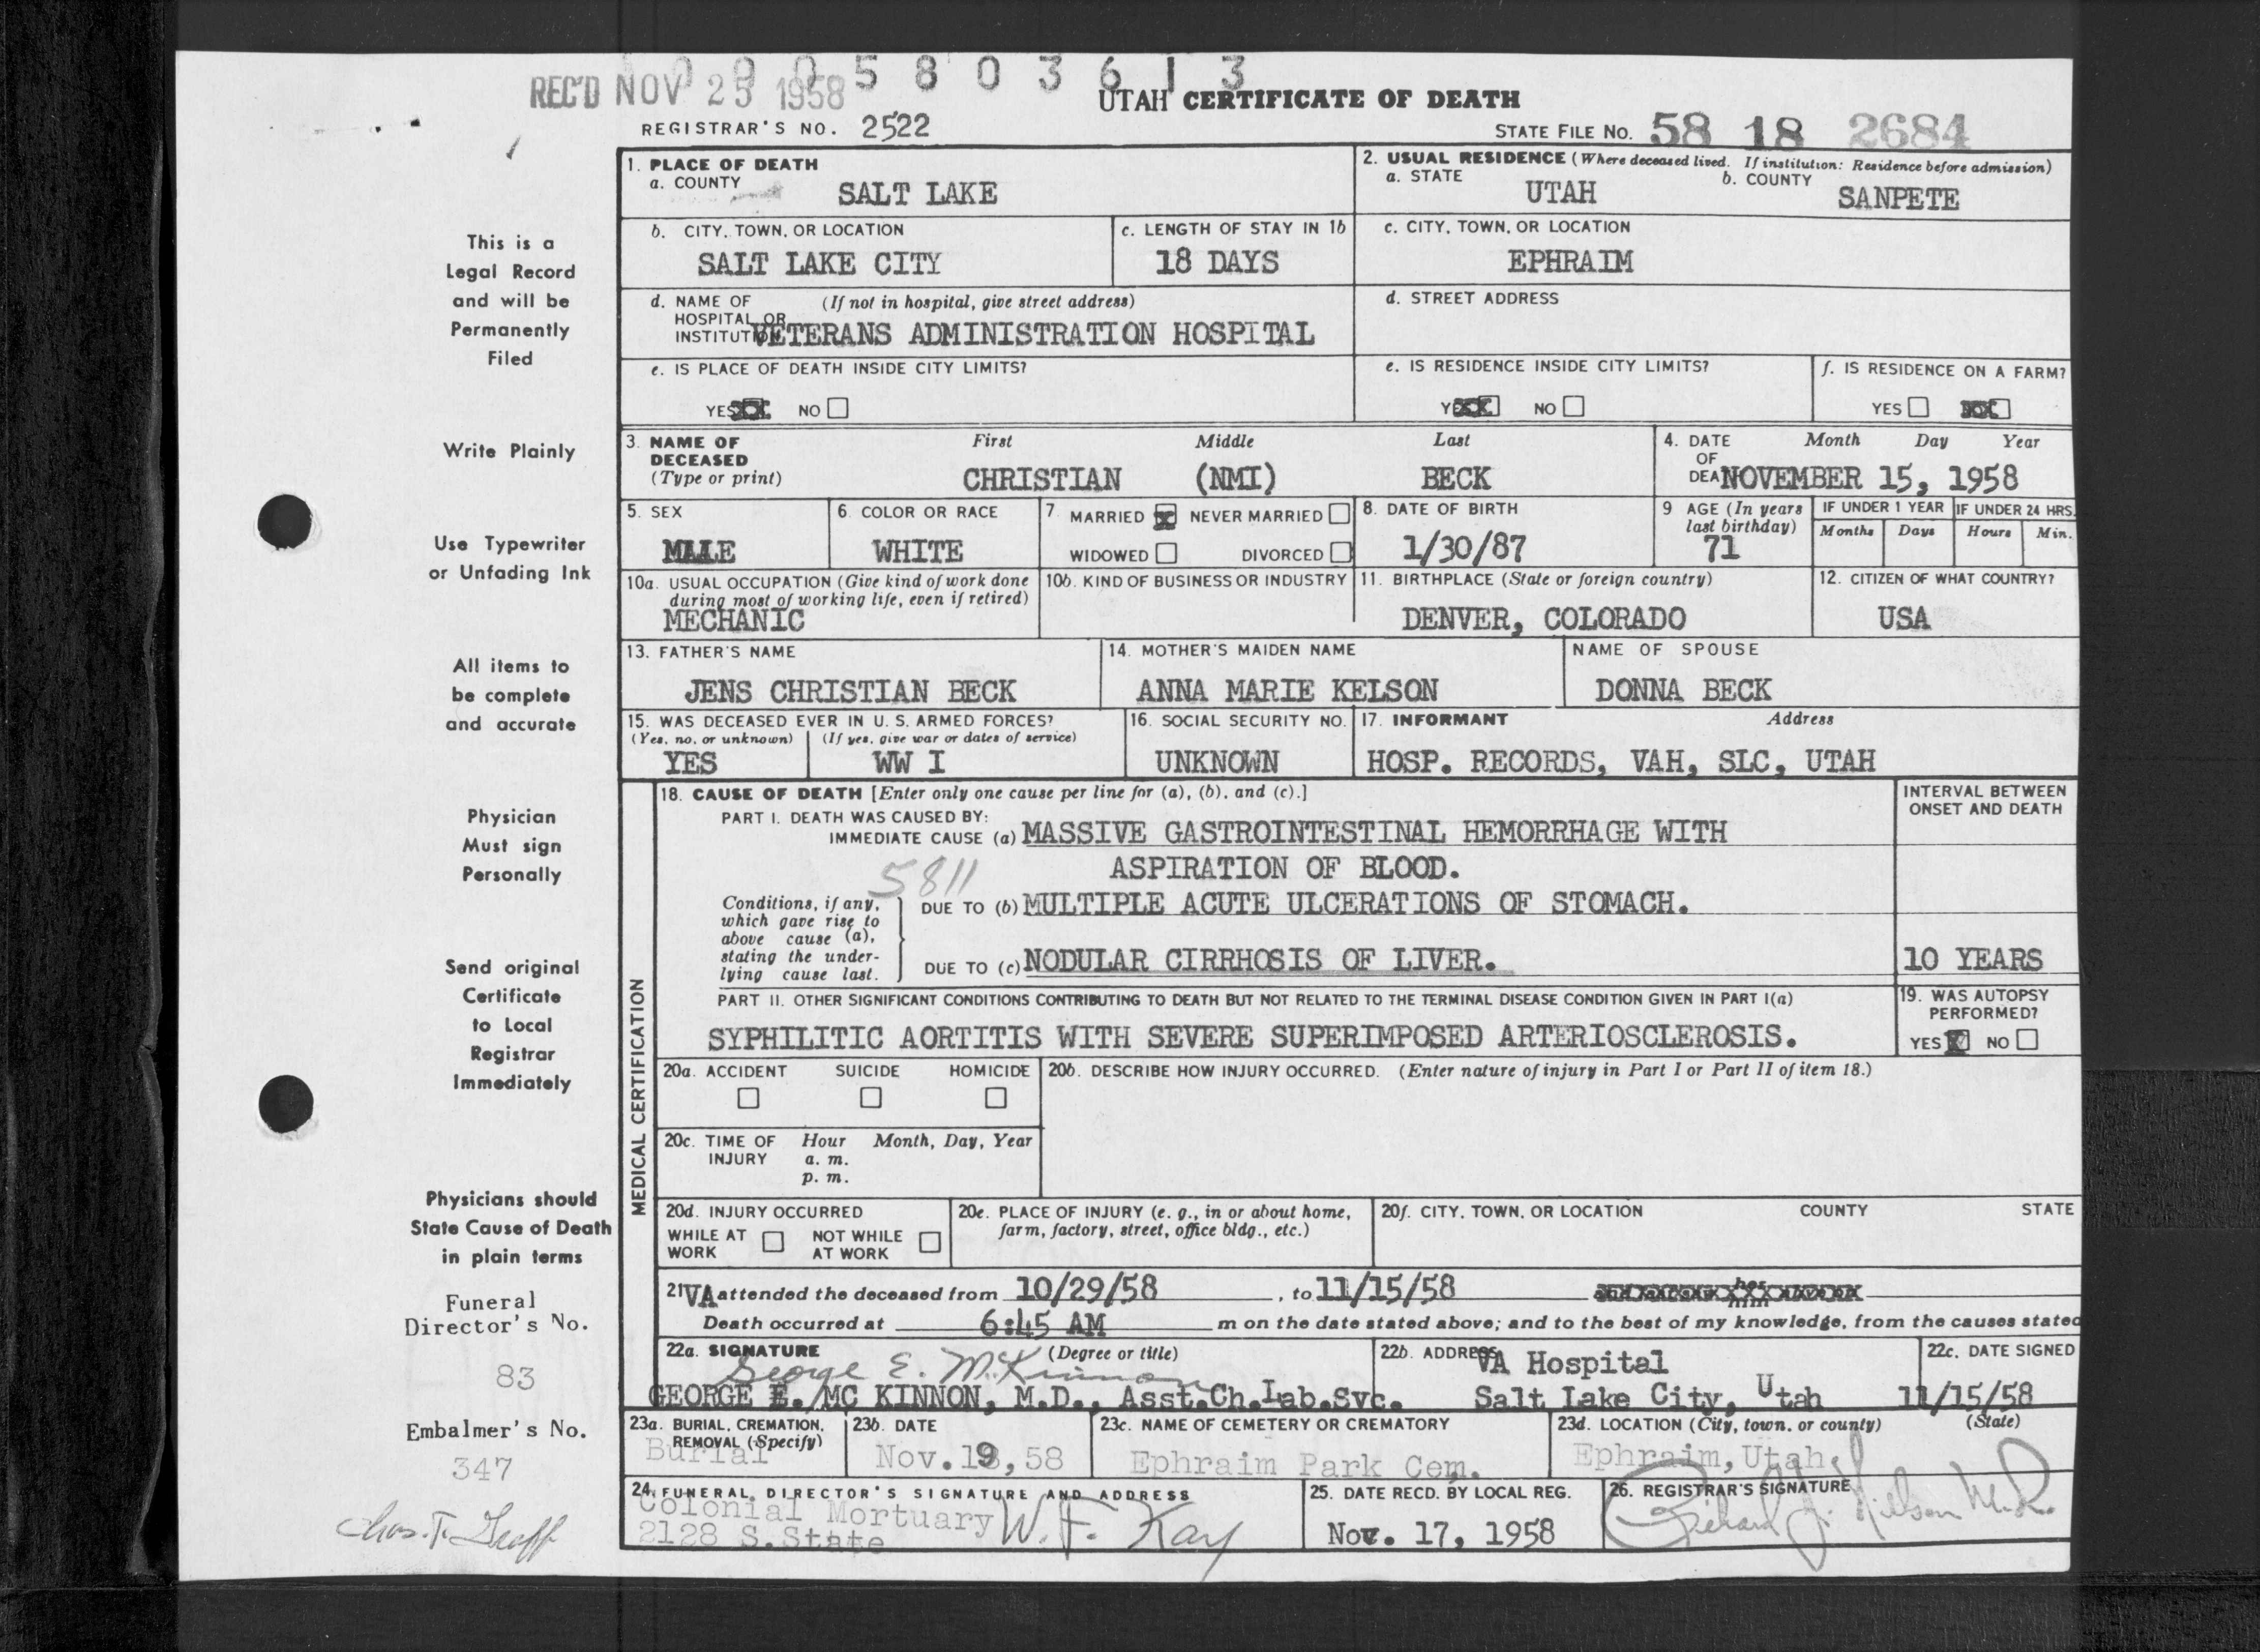 0 0 0 5 8 0 3 6 1 3
REC'D NOV 25 1958
UTAH CERTIFICATE OF DEATH
REGISTRAR'S NO. 2522
STATE FILE NO. 58 18 2684
1. PLACE OF DEATH
a. COUNTY SALT LAKE
2. USUAL RESIDENCE (Where deceased lived. If institution: Residence before admission)
a. STATE UTAH b. COUNTY SANPETE
b. CITY, TOWN, OR LOCATION SALT LAKE CITY
c. LENGTH OF STAY IN 1b 18 DAYS
c. CITY, TOWN, OR LOCATION EPHRAIM
d. NAME OF (If not in hospital, give street address)
HOSPITAL OR
INSTITUTION VETERANS ADMINISTRATION HOSPITAL
d. STREET ADDRESS
e. IS PLACE OF DEATH INSIDE CITY LIMITS?
YES NO
e. IS RESIDENCE INSIDE CITY LIMITS?
YES NO
f. IS RESIDENCE ON A FARM?
YES NO
3. NAME OF DECEASED (Type or print)
First Middle Last
CHRISTIAN (NMI) BECK
4. DATE OF DEATH Month Day Year
NOVEMBER 15, 1958
5. SEX MALE
6. COLOR OR RACE WHITE
7. MARRIED NEVER MARRIED
WIDOWED DIVORCED
8. DATE OF BIRTH 1/30/87
9 AGE (In years last birthday) 71
IF UNDER 1 YEAR Months Days
IF UNDER 24 HRS. Hours Min.
10a. USUAL OCCUPATION (Give kind of work done during most of working life, even if retired)
MECHANIC
10b. KIND OF BUSINESS OR INDUSTRY
11. BIRTHPLACE (State or foreign country)
DENVER, COLORADO
12. CITIZEN OF WHAT COUNTRY?
USA
13. FATHER'S NAME
JENS CHRISTIAN BECK
14. MOTHER'S MAIDEN NAME
ANNA MARIE KELSON
NAME OF SPOUSE
DONNA BECK
15. WAS DECEASED EVER IN U. S. ARMED FORCES?
(Yes, no, or unknown) (If yes, give war or dates of service)
YES WW I
16. SOCIAL SECURITY NO.
UNKNOWN
17. INFORMANT Address
HOSP. RECORDS, VAH, SLC, UTAH
MEDICAL CERTIFICATION
18. CAUSE OF DEATH [Enter only one cause per line for (a), (b), and (c).]
INTERVAL BETWEEN ONSET AND DEATH
PART I. DEATH WAS CAUSED BY:
IMMEDIATE CAUSE (a) MASSIVE GASTROINTESTINAL HEMORRHAGE WITH
ASPIRATION OF BLOOD.
5811
Conditions, if any, which gave rise to above cause (a), stating the underlying cause last.
DUE TO (b) MULTIPLE ACUTE ULCERATIONS OF STOMACH.
DUE TO (c) NODULAR CIRRHOSIS OF LIVER. 10 YEARS
PART II. OTHER SIGNIFICANT CONDITIONS CONTRIBUTING TO DEATH BUT NOT RELATED TO THE TERMINAL DISEASE CONDITION GIVEN IN PART I(a)
SYPHILITIC AORTITIS WITH SEVERE SUPERIMPOSED ARTERIOSCLEROSIS.
19. WAS AUTOPSY PERFORMED?
YES NO
20a. ACCIDENT SUICIDE HOMICIDE
20b. DESCRIBE HOW INJURY OCCURRED. (Enter nature of injury in Part I or Part II of item 18.)
20c. TIME OF INJURY Hour Month, Day, Year
a. m.
p. m.
20d. INJURY OCCURRED
WHILE AT WORK NOT WHILE AT WORK
20e. PLACE OF INJURY (e. g., in or about home, farm, factory, street, office bldg., etc.)
20f. CITY, TOWN, OR LOCATION COUNTY STATE
21 VA attended the deceased from 10/29/58, to 11/15/58
her
him
Death occurred at 6:45 AM m on the date stated above; and to the best of my knowledge, from the causes stated
22a. SIGNATURE (Degree or title)
George E. McKinnon
GEORGE E. MC KINNON, M.D., Asst.Ch.Lab.Svc.
22b. ADDRESS VA Hospital
Salt Lake City, Utah
22c. DATE SIGNED
11/15/58
23a. BURIAL, CREMATION, REMOVAL (Specify)
Burial
23b. DATE
Nov.19,58
23c. NAME OF CEMETERY OR CREMATORY
Ephraim Park Cem.
23d. LOCATION (City, town, or county) (State)
Ephraim, Utah,
24. FUNERAL DIRECTOR'S SIGNATURE AND ADDRESS
Colonial Mortuary
2128 S.State
W. F. Kay
25. DATE RECD. BY LOCAL REG.
Nov. 17, 1958
26. REGISTRAR'S SIGNATURE
Richard J. Nielson M.D.
This is a
Legal Record
and will be
Permanently
Filed
Write Plainly
Use Typewriter
or Unfading Ink
All items to
be complete
and accurate
Physician
Must sign
Personally
Send original
Certificate
to Local
Registrar
Immediately
Physicians should
State Cause of Death
in plain terms
Funeral
Director's No.
83
Embalmer's No.
347
Chas. T. Graff